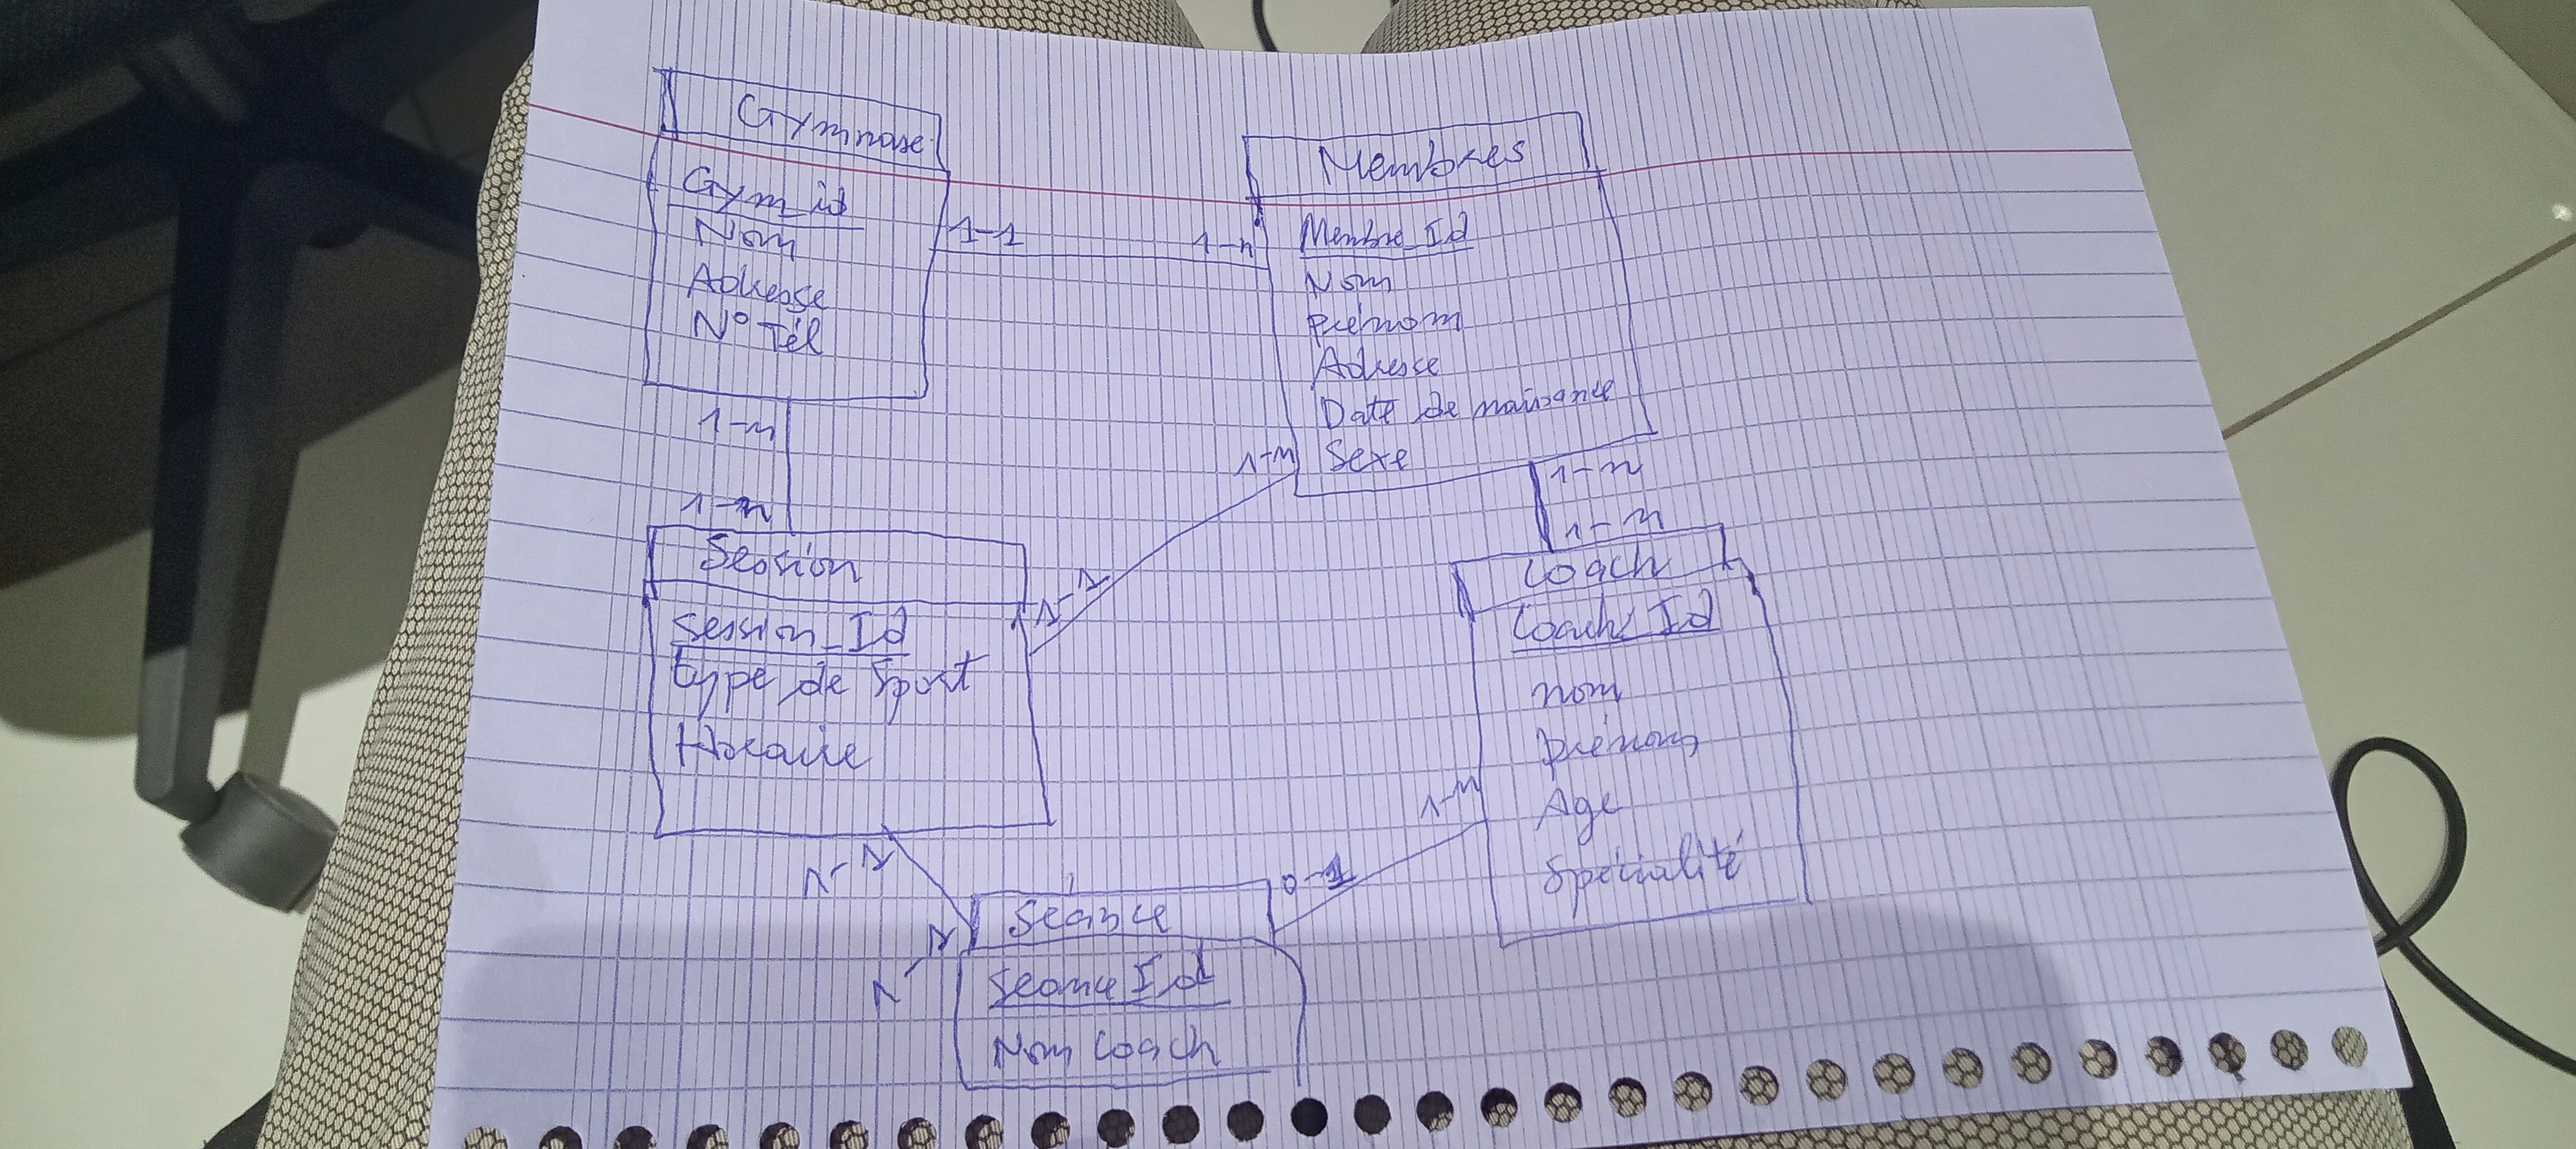 Gymnase
Gym_id
Nom
Adresse
N° Tél
1-1
1-n
Membres
Membre_Id
Nom
prénom
Adresse
Date de naissance
Sexe
1-n
1-n
1-n
1-n
1-n
1-n
Session
Session_Id
type de Sport
Horaire
Coach
Coach_Id
nom
prénom
Age
Spécialité
1-n
0-1
1-n
1-n
Seance
Seance Id
Nom Coach